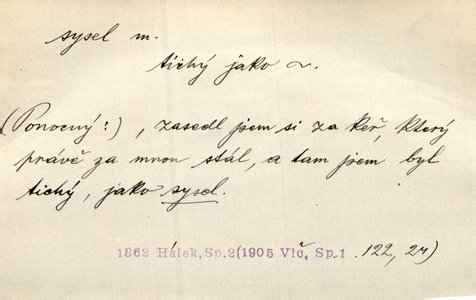 sysel m.
tichý jako ~.
(Ponocný:), zasedl jsem si za keř, který
právě za mnou stál, a tam jsem byl
tichý, jako sysel.
1862 Hálek, Sp.2(1905 Vlč, Sp.1 . 122, 27)